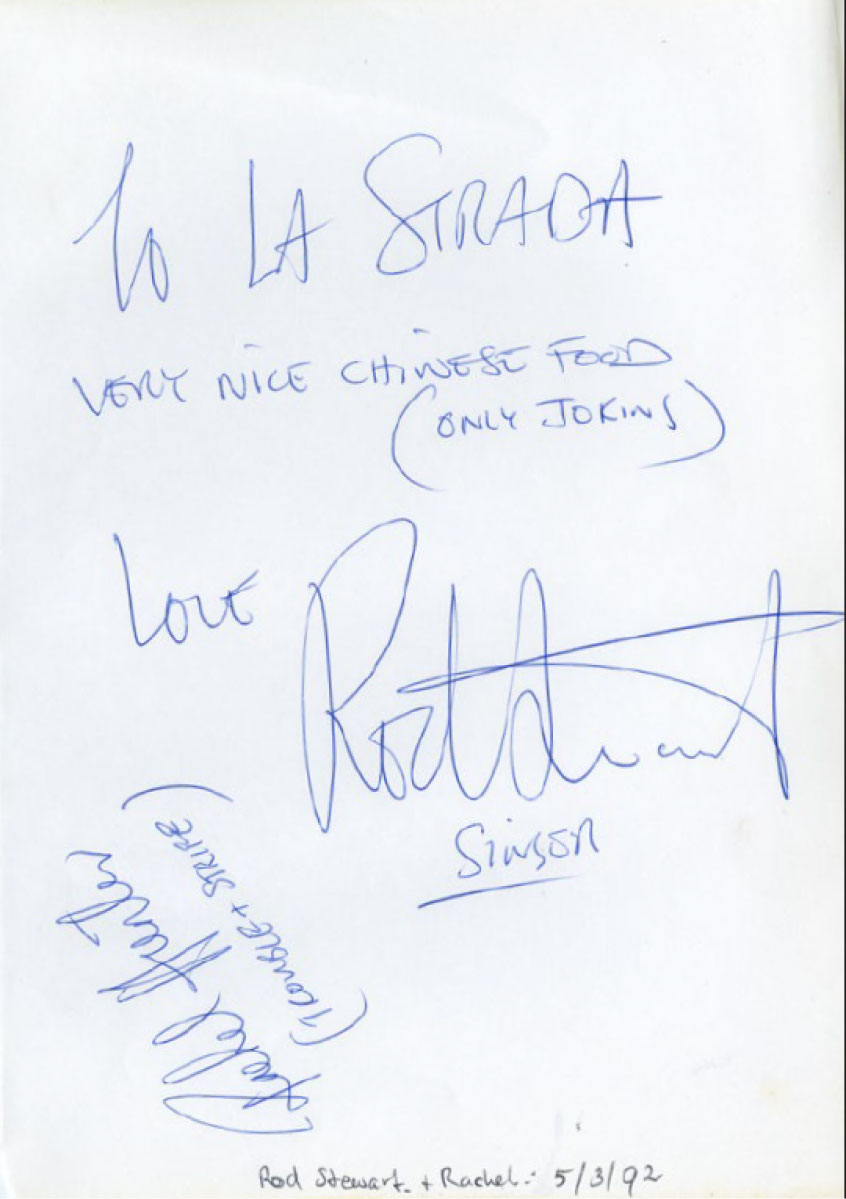 To LA STRADA
VERY NICE CHINESE FOOD
(ONLY JOKING)
LOVE Rod Stewart
SINGER
Rachel Hunter
(TROUBLE + STRIFE)
Rod Stewart. + Rachel: 5/3/92